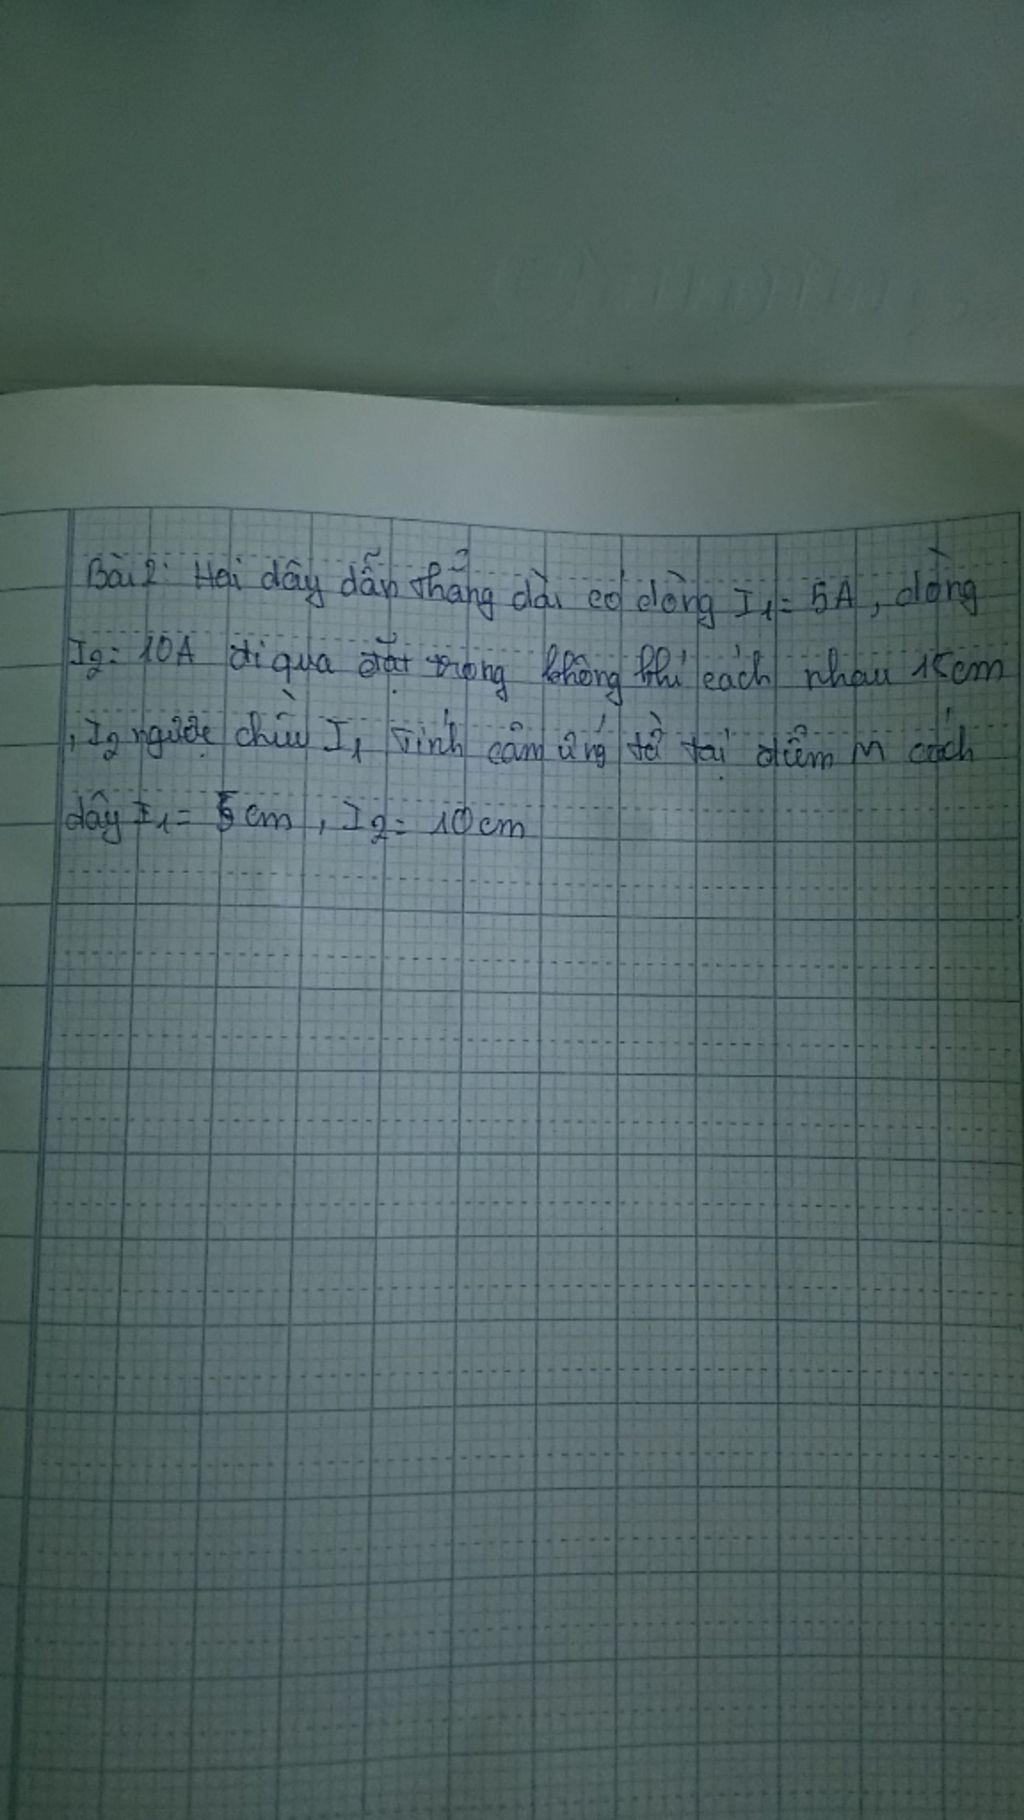 Bài 2: Hai dây dẫn thẳng dài có dòng I1 = 5A, dòng
I2 = 10A đi qua đặt trong không khí cách nhau 15cm
, I2 ngược chiều I1 Tính cảm ứng từ tại điểm M cách
dây I1 = 5cm, I2 = 10cm